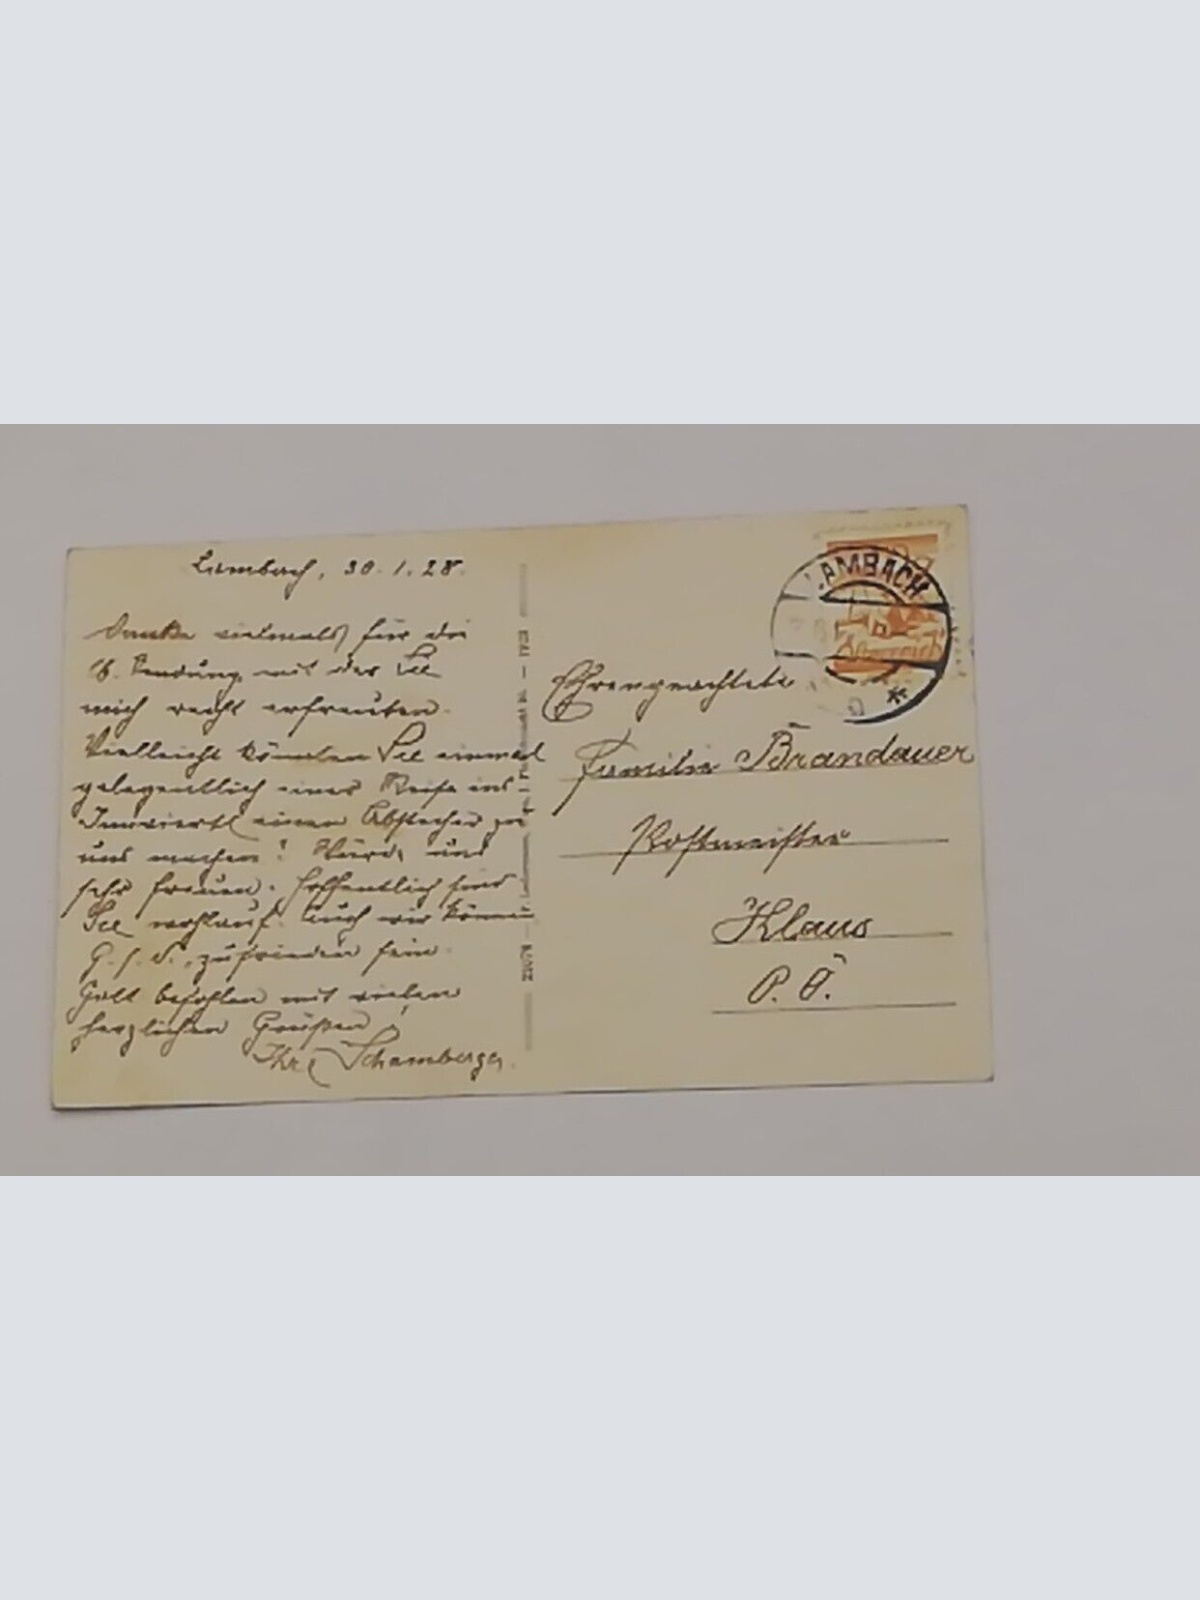 Lambach, 30.1.28.
Danke vielmals für die
lb. Sendung, mit der Sie
mich recht erfreuten.
Vielleicht könnten Sie einmal
gelegentlich einer Reise ins
Innviertl einen Abstecher zu
uns machen! Würde uns
sehr freuen. Hoffentlich sind
Sie wohlauf. Auch wir können
G. s. D. zufrieden sein.
Gott befohlen mit vielen
herzlichen Grüßen!
Ihr Schamberger.
LAMBACH
Österreich
Ehrengeachtete
Familie Brandauer
Postmeister
Klaus
O. Ö.